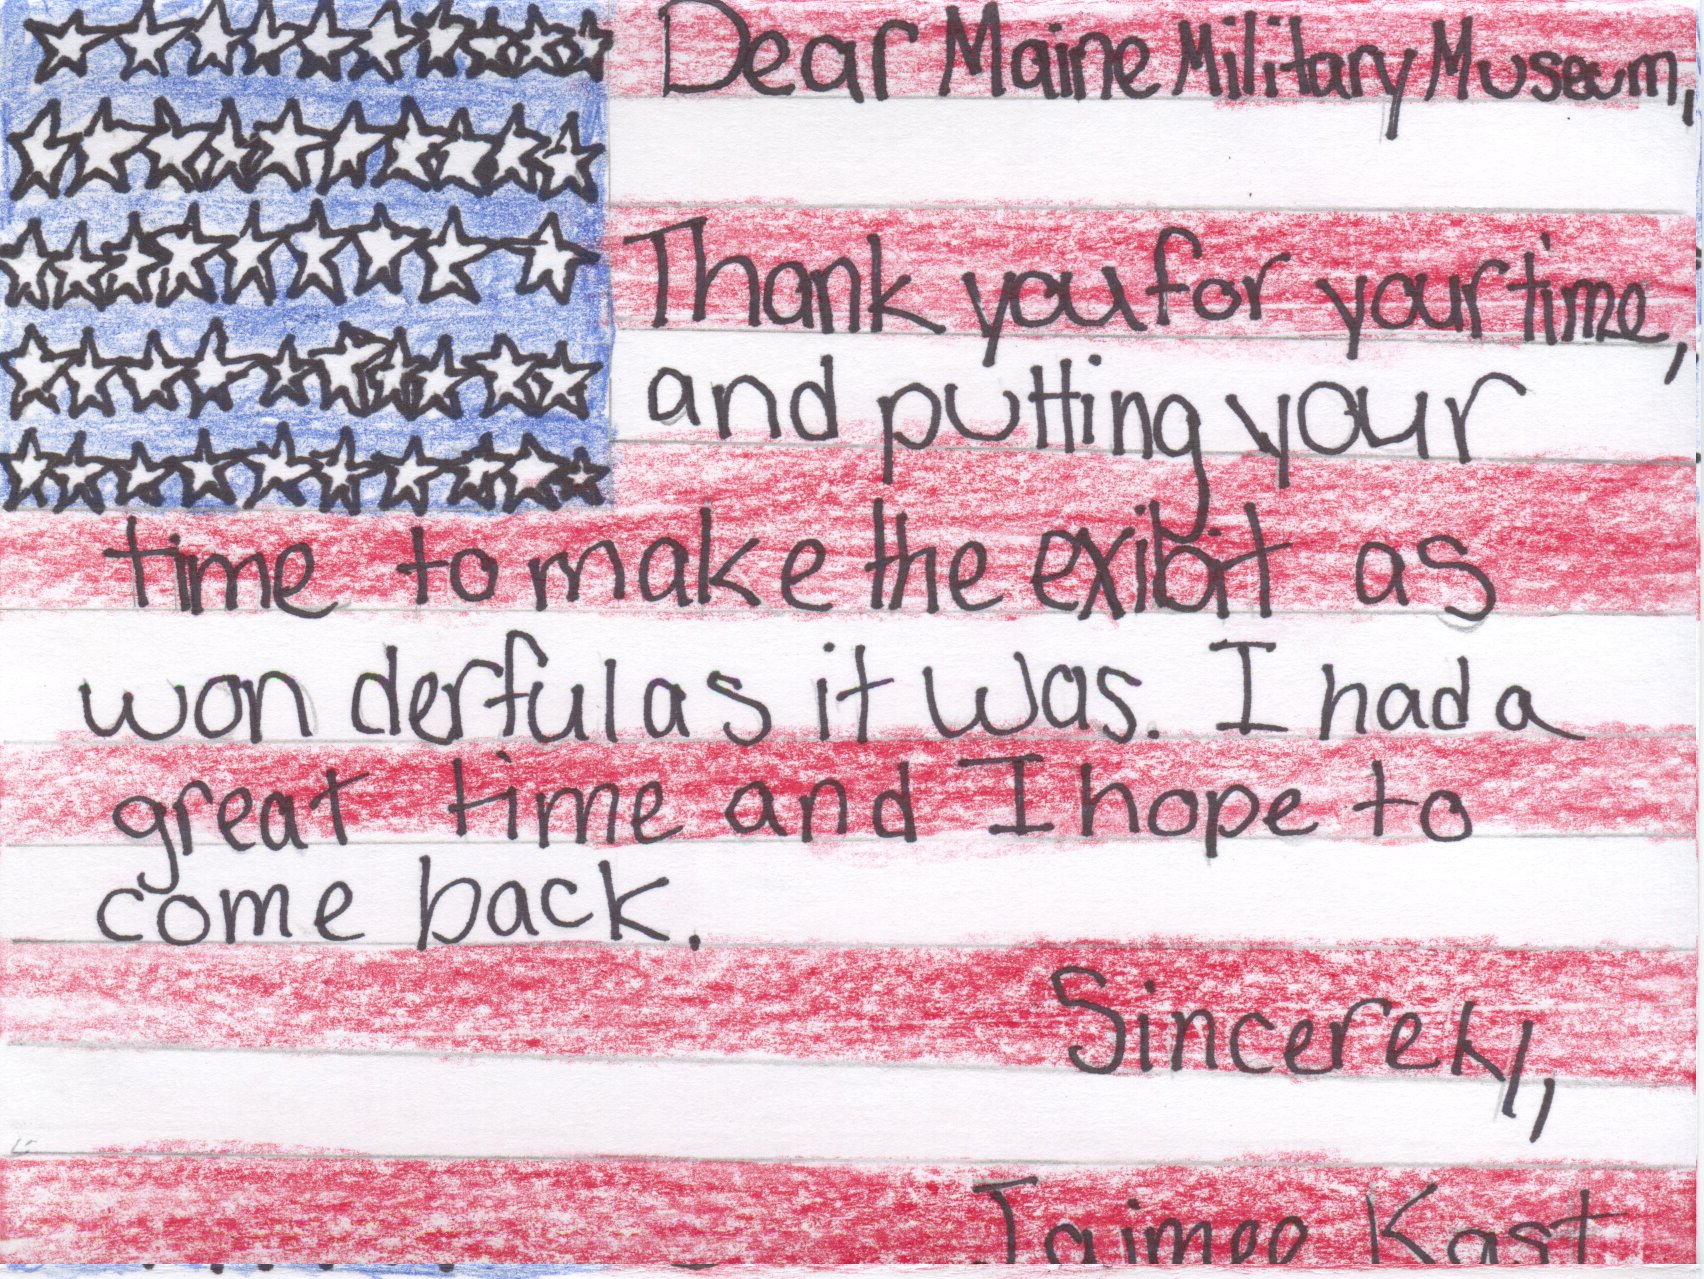 Dear Maine Military Museum,
Thank you for your time,
and putting your
time to make the exibit as
wonderful as it was. I had a
great time and I hope to
come back.
Sincerely,
Jaimee Kast